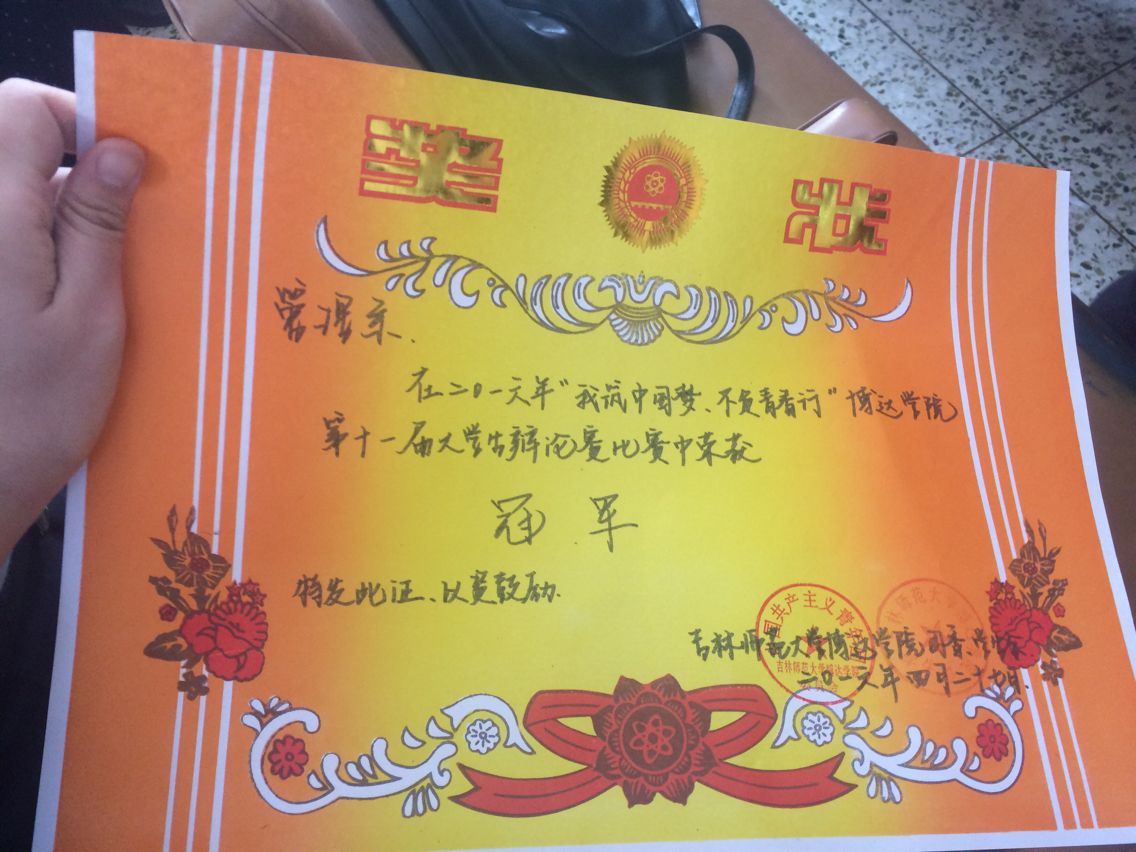 奖状
管理系、
在二〇一六年“我筑中国梦、不负青春行”博达学院
第十一届大学生辩论赛比赛中荣获
冠 军
特发此证、以资鼓励.
吉林师范大学博达学院团委、学生会
二〇一六年四月二十七日.
中国共产主义青年团
吉林师范大学博达学院
吉林师范大学